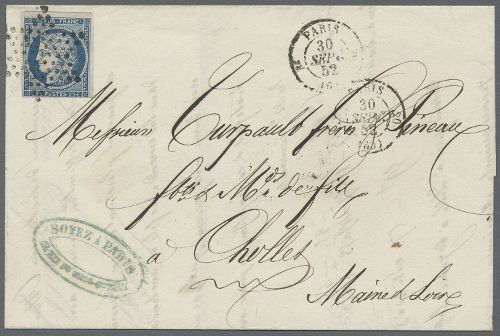 REPUB. FRANC.
POSTES 25c
PARIS
30
SEPT
52
(60)
PARIS
30
SEPT
52
(60)
Messieurs Turpault frères & Pineau
fbts & Mds de fils
à Chollet
Maine & Loire
SOYEZ A PARIS